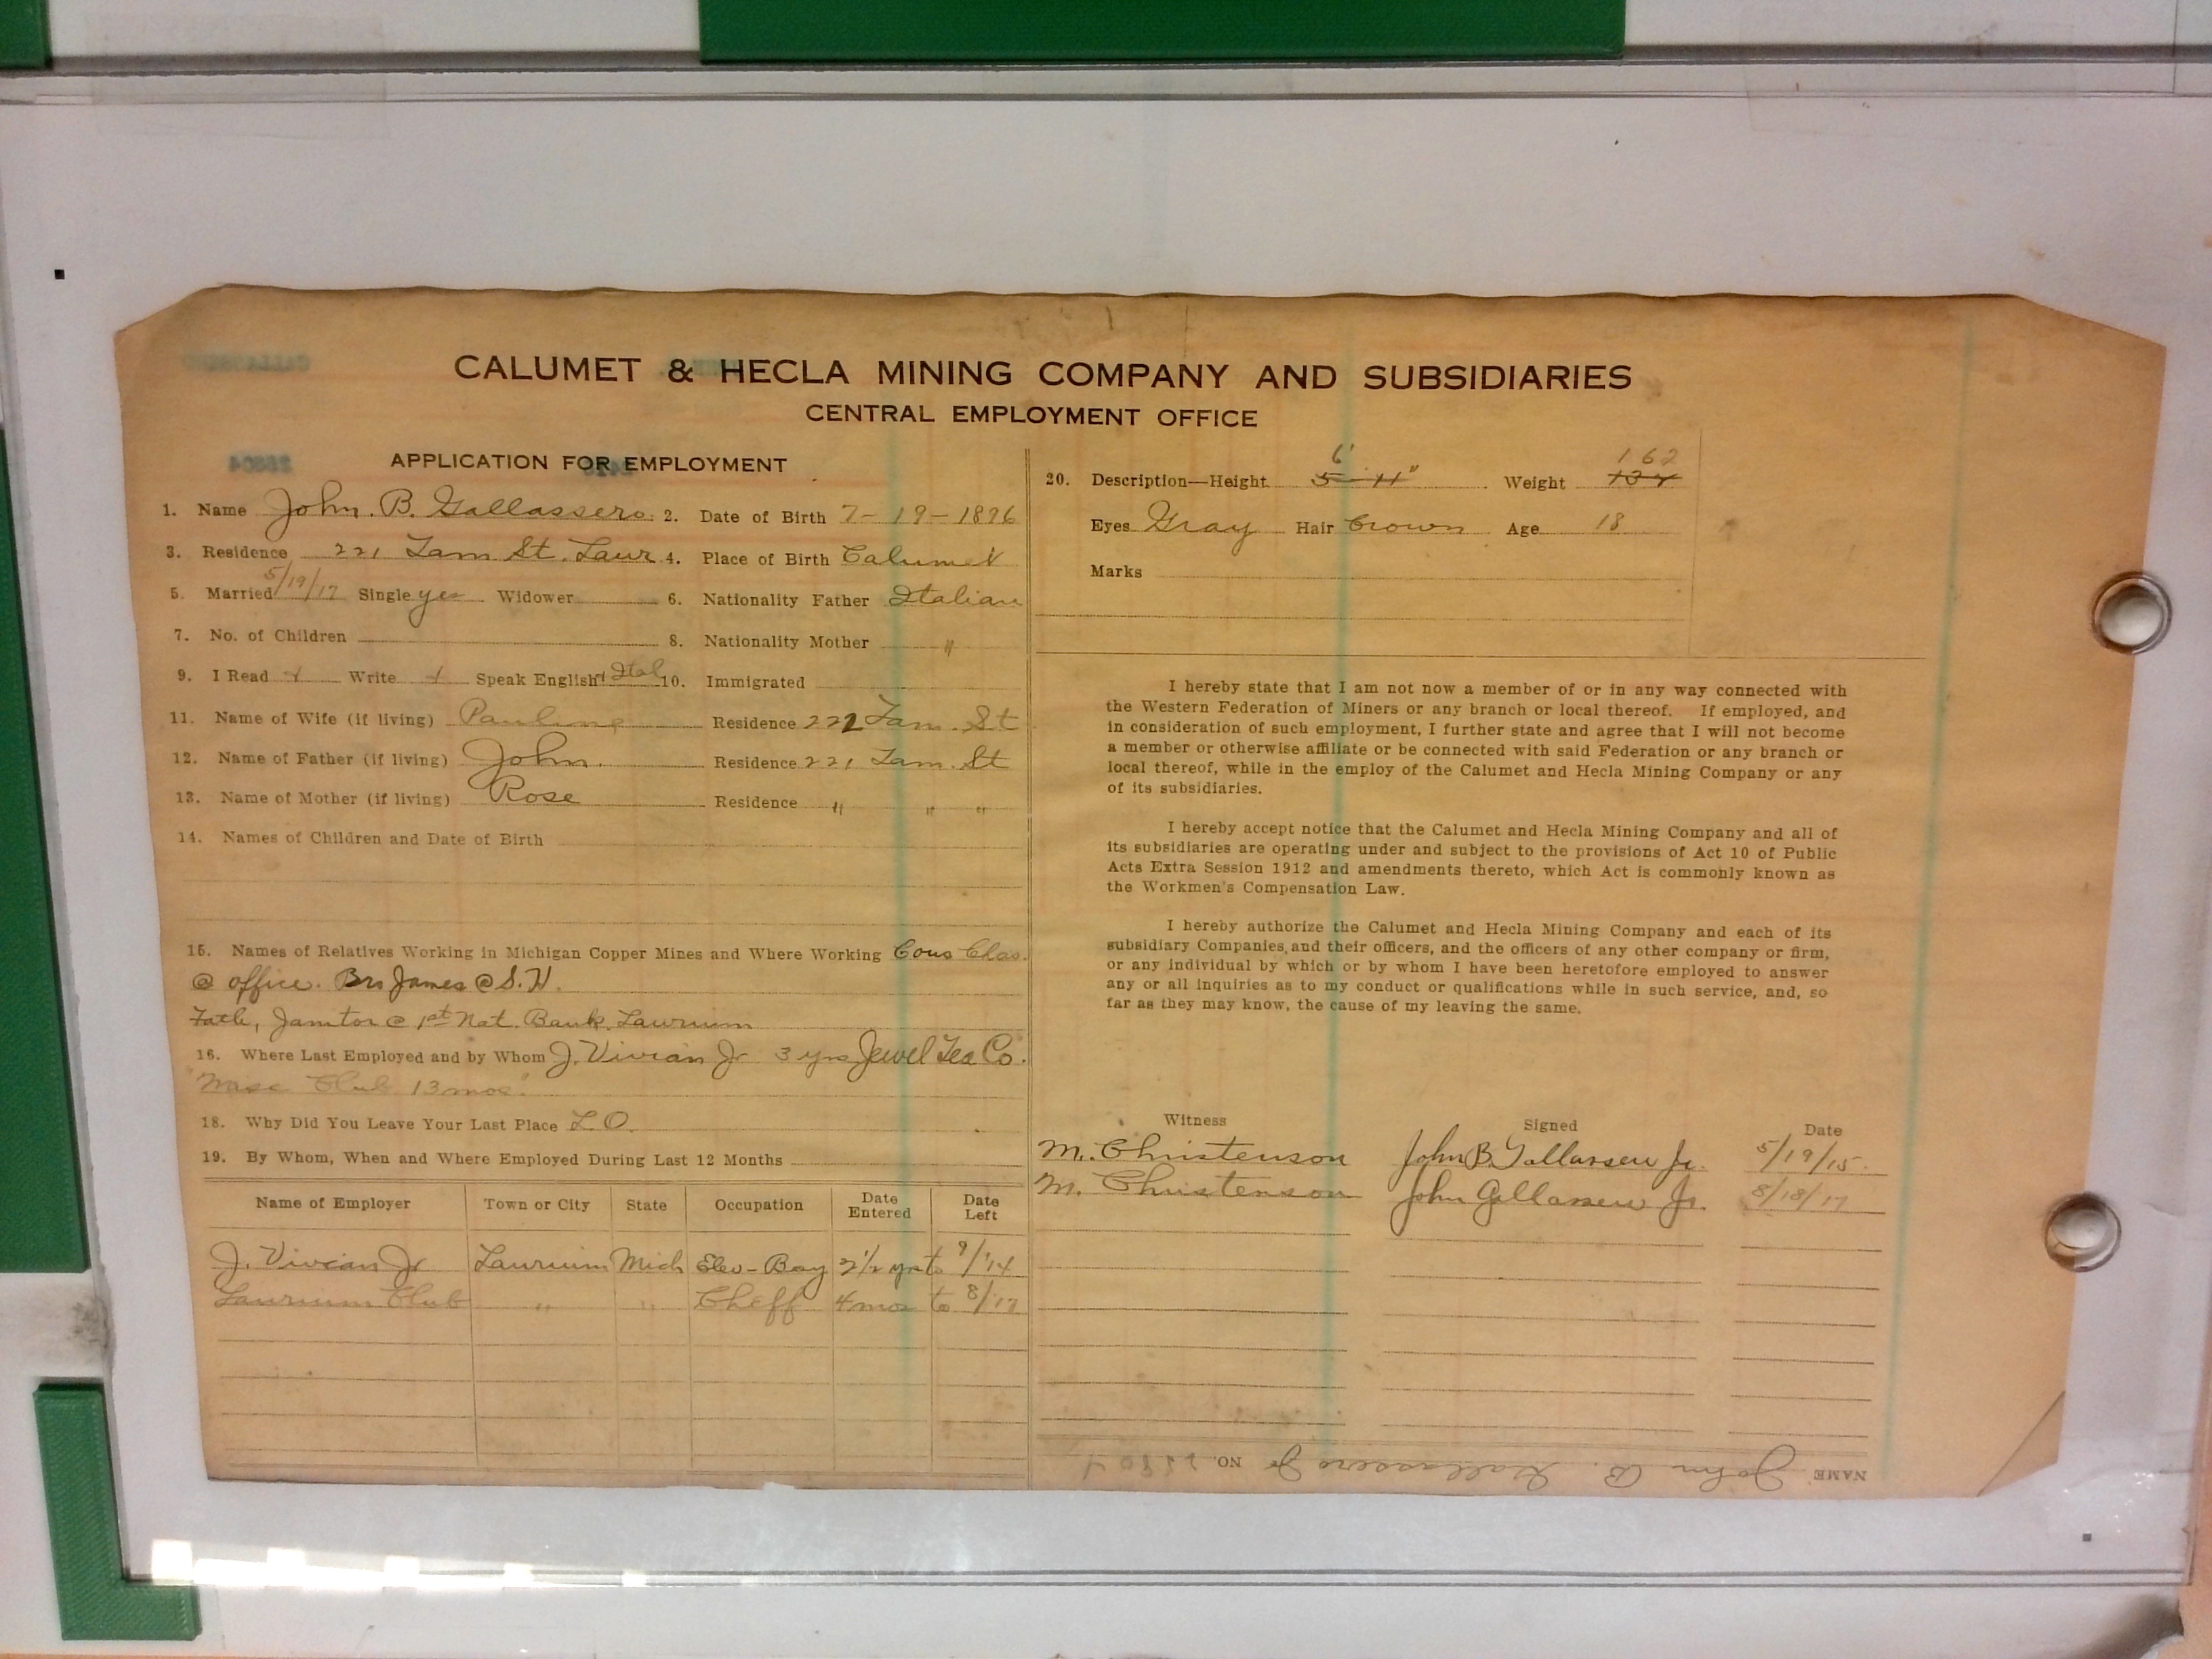 CALUMET & HECLA MINING COMPANY AND SUBSIDIARIES
CENTRAL EMPLOYMENT OFFICE
APPLICATION FOR EMPLOYMENT
1. Name John. B. Gallassero. 2. Date of Birth 7-19-1896
3. Residence 221 Tam St. Laur. 4. Place of Birth Calumet
5. Married 5/19/17 Single yes Widower 6. Nationality Father Italian
7. No. of Children 8. Nationality Mother "
9. I Read + Write + Speak English + Ital 10. Immigrated
11. Name of Wife (if living) Pauline Residence 221 Tam. St
12. Name of Father (if living) John. Residence 221 Tam. St
13. Name of Mother (if living) Rose Residence " " "
14. Names of Children and Date of Birth
15. Names of Relatives Working in Michigan Copper Mines and Where Working Cous Chas.
@ office. Bro James @ S. H.
Fath, Janitor @ 1st Nat. Bank, Laurium
16. Where Last Employed and by Whom J. Vivian Jr 3 yrs Jewel Tea Co.
Club 13 mos.
18. Why Did You Leave Your Last Place L. O.
19. By Whom, When and Where Employed During Last 12 Months
Name of Employer Town or City State Occupation Date Entered Date Left
J. Vivian Jr Laurium Mich Elev-Boy 2 1/2 yrs to 9/14
Laurium Club " " Cheff 4 mos to 8/17
20. Description—Height 6' 5-11" Weight 162
Eyes Gray Hair Brown Age 18
Marks
I hereby state that I am not now a member of or in any way connected with
the Western Federation of Miners or any branch or local thereof. If employed, and
in consideration of such employment, I further state and agree that I will not become
a member or otherwise affiliate or be connected with said Federation or any branch or
local thereof, while in the employ of the Calumet and Hecla Mining Company or any
of its subsidiaries.
I hereby accept notice that the Calumet and Hecla Mining Company and all of
its subsidiaries are operating under and subject to the provisions of Act 10 of Public
Acts Extra Session 1912 and amendments thereto, which Act is commonly known as
the Workmen's Compensation Law.
I hereby authorize the Calumet and Hecla Mining Company and each of its
subsidiary Companies, and their officers, and the officers of any other company or firm,
or any individual by which or by whom I have been heretofore employed to answer
any or all inquiries as to my conduct or qualifications while in such service, and, so
far as they may know, the cause of my leaving the same.
Witness Signed Date
M. Christenson John B. Gallassero Jr. 5/19/15.
M. Christenson John Gallassero Jr. 8/18/17
NAME John B. Gallassero Jr NO. 25804